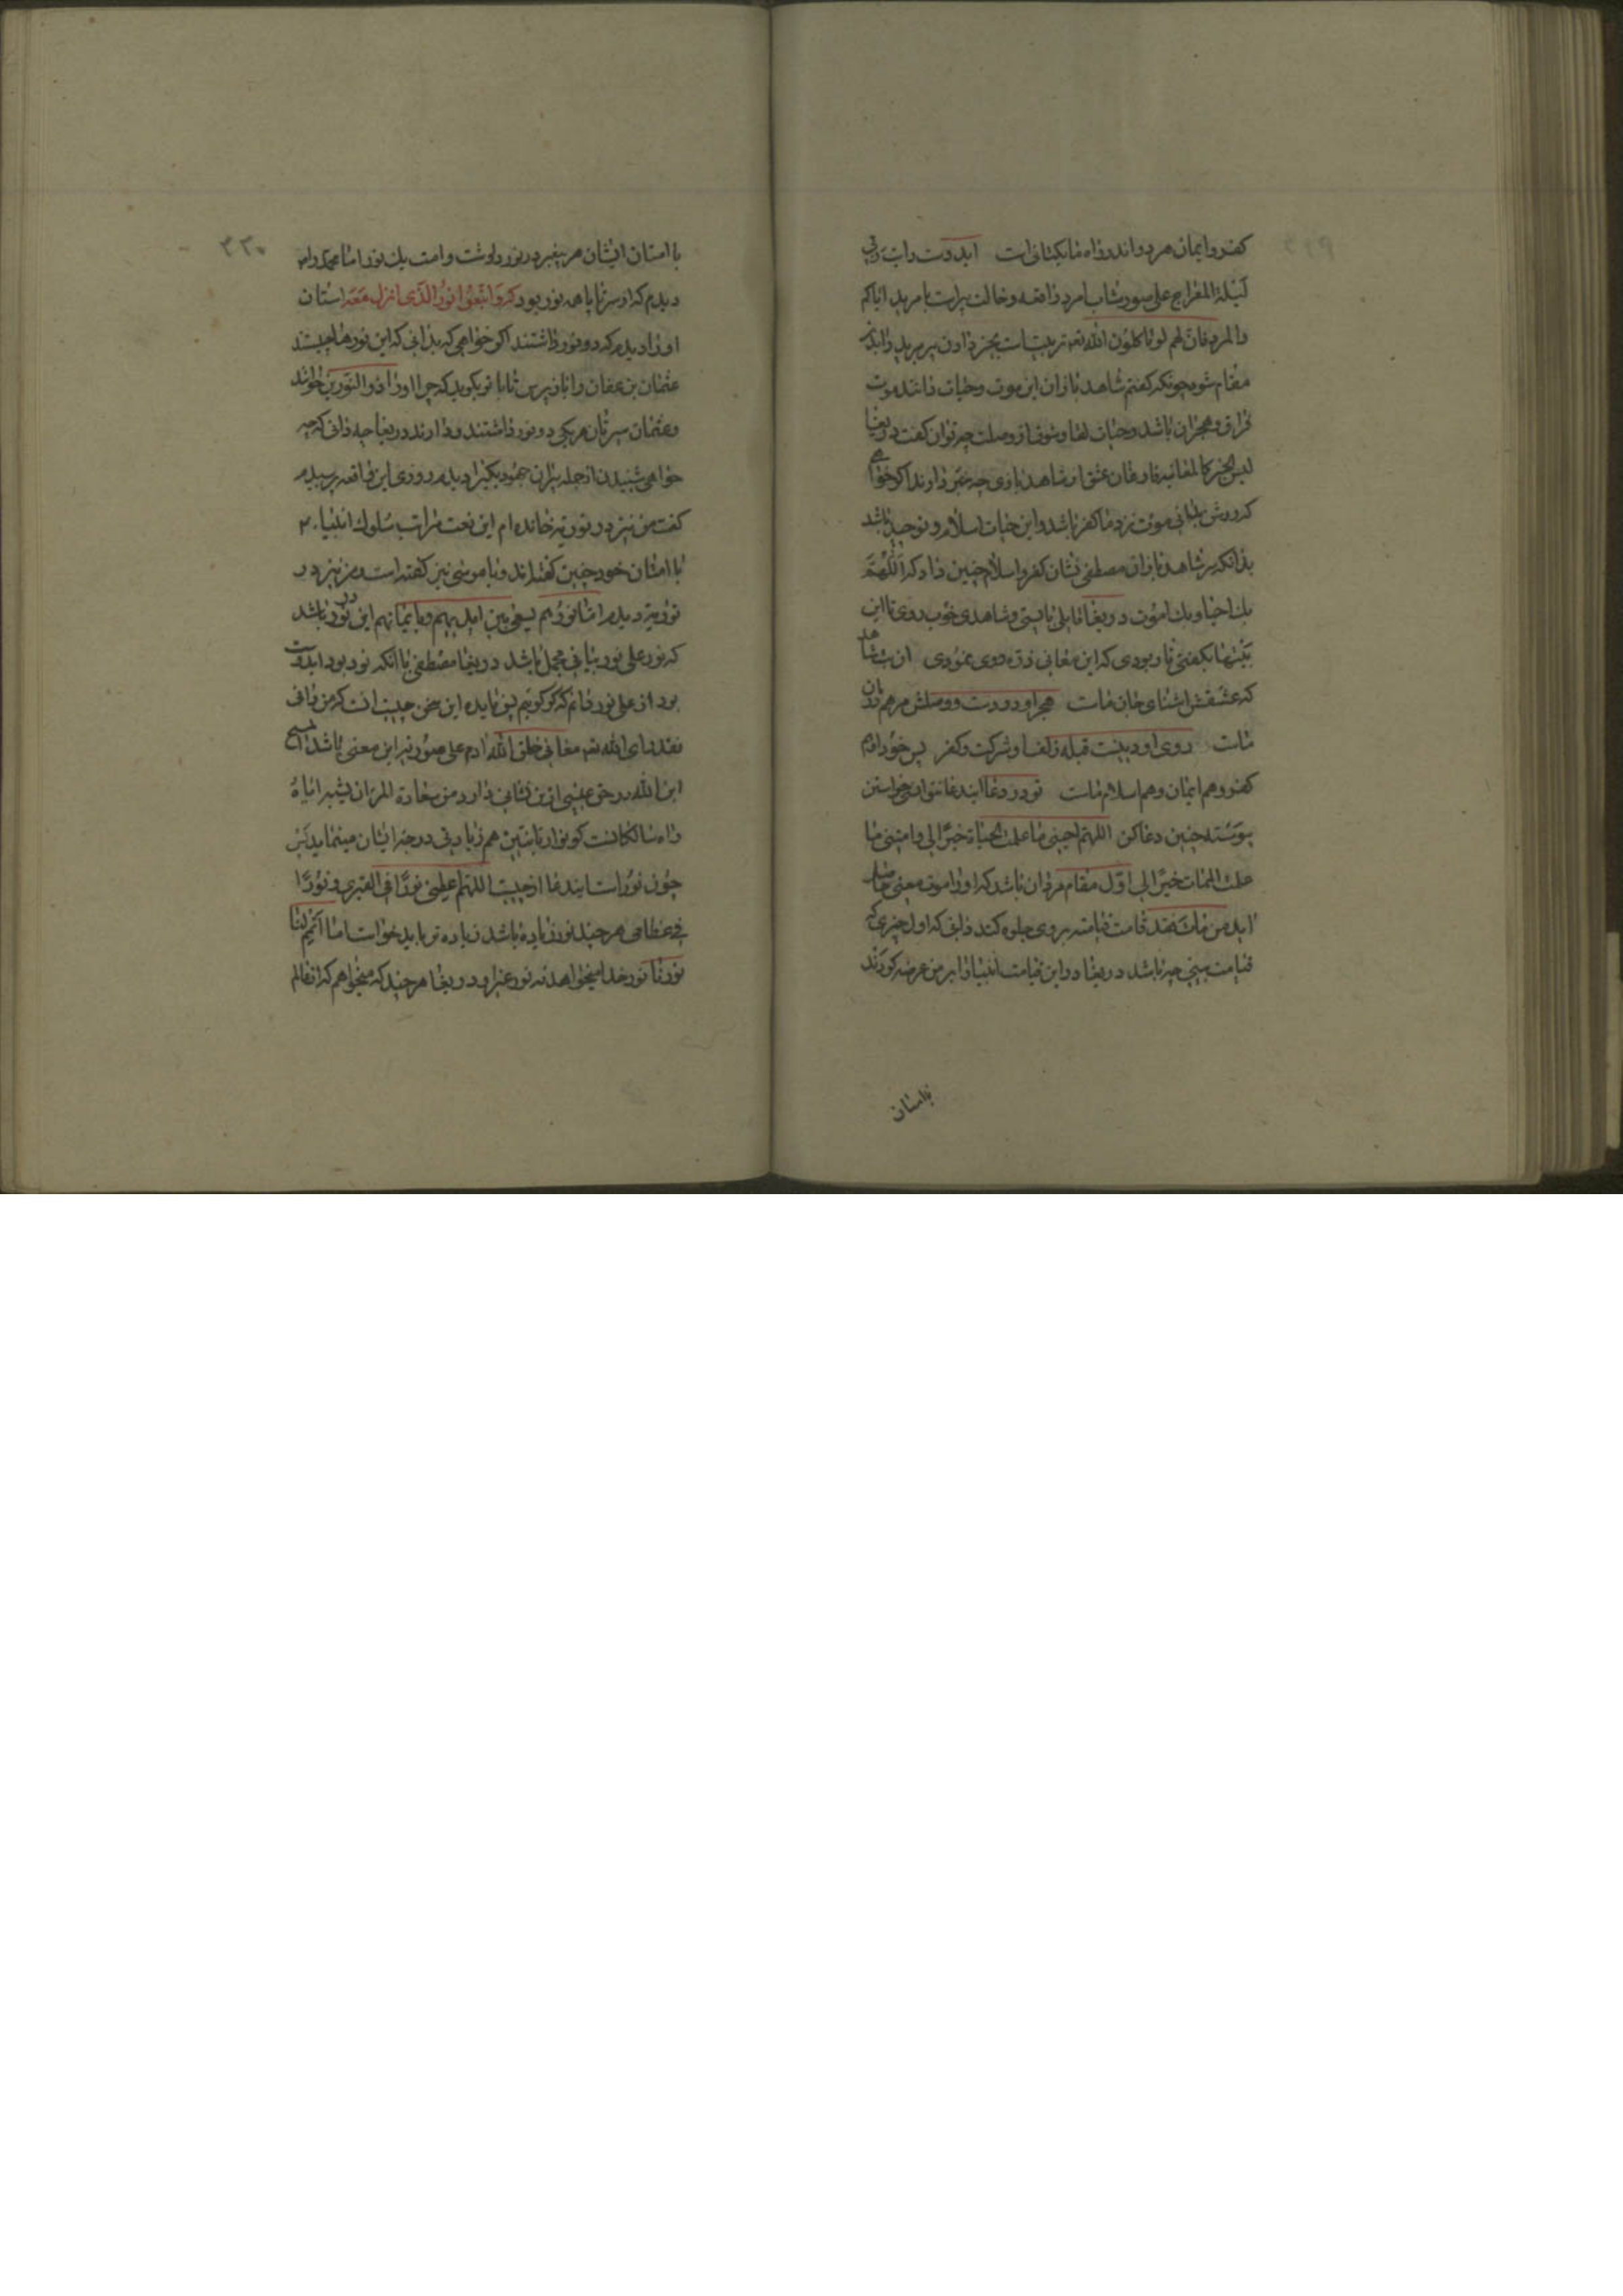 ۳۱۹
کفر و ایمان هر دو اندر راه ما یکسانی است ای دوست رایت ربی
لیلة المعراج علی صورت شاب امرد واقعه و حالت پیر است با مرید ایاکم
والمرد فان لهم لونا کلون الله تعه تربیت است بحق
مقام شود چونکه گفتم شاهد بازان این موت و حیات دانند موت
فراق و هجران باشد و حیات لقا و شوق از وصلت چه توان گفت دریغا
لیس الخبر کالمعاینه عارفان عشق از شاهد بازی چه خبر دارند اگر خواهی
که روشن بدانی موت نزد ما کفر باشد و این حیات اسلام و توحید باشد
بدانکه سر شاهد بازان مصطفی نشان کفر و اسلام چنین داد که اللهم
بک احیا و بک اموت دریغا قابلی بایستی و شاهدی خوب روی تا این
بیتها بگفتی تا بودی که این معانی ذره روی نمودی آن بت شاهد
که عشقش آشنای جان ماست هجر او درد است و وصلش مرهم و درمان
ماست روی او دینست قبله زلف او شرکت و کفر پس خود او هم
کفر و هم ایمان و هم اسلام ماست تو در دعا ایندعا نتوانی خواستن
پیوسته چنین دعا کن اللهم احینی ما علمت الحیاة خیرا لی و امتنی ما
علمت الممات خیرا لی اول مقام مردان باشد که او را موت معنی حاصل
آید من مات فقد قامت قیامته بر وی جلوه کند دانی که اول چیزی که
قیامت بینی چه باشد دریغا در این قیامت انبیا را بر من عرضه کردند
باامتان
۳۲۰
با امتان ایشان هر پیغمبر دو نور داشت و امت یک نور اما محمد را
دیدم که از سر تا پا همه نور بود که وَاتَّبَعُوا نُورَ الَّذی اُنزِلَ مَعَهُ امتان
او را دیدم که دو نور داشتند اگر خواهی که بدانی که این نورها چیستند
عثمان بن عفان را باز پرس تا با تو بگوید که چرا او را ذو النورین خوانند
و عثمان سیرتان هر یکی دو نور داشتند و دارند دریغا چه دانی که چه
خواهی شنیدن از جمله بزرگان جهود یکی را دیدم روزی این واقعه پرسیدم
گفت من نیز در توریة خوانده ام این نعت مراتب سلوک انبیا
با امتان خود چنین گفته اند و با موسی نیز گفته است و من نیز در
توریة دیدم اما نورهم یسعی بین ایدیهم و بایمانهم این نور در باشد
که نور علی نور بیانی مجمل باشد دریغا مصطفی با آنکه نور بود ای دوست
بود از علی نور دانم که گر گویم پس تا بداند این سخن چیست آنست که من رآنی
فقد رای الله تعه معانی خلق الله آدم علی صورته این معنی باشد المسیح
ابن الله روح عیسی از این نشانی دارد من سعادة المرء ان یشبه اباه
راه سالکانست که نور را تا بدین هم زیادتی درجه ایشان مینماید پس
چون نور است ایندعا از چیست اللهم اعطنی نورا فی القبری و نورا
فی عظامی هر چند نور زیاده باشد زیاده تر باید خواست اما اتمم لنا
نورنا نور خدا میخواهد نه نور غیر او دریغا هر چند که میخواهم که از عالم